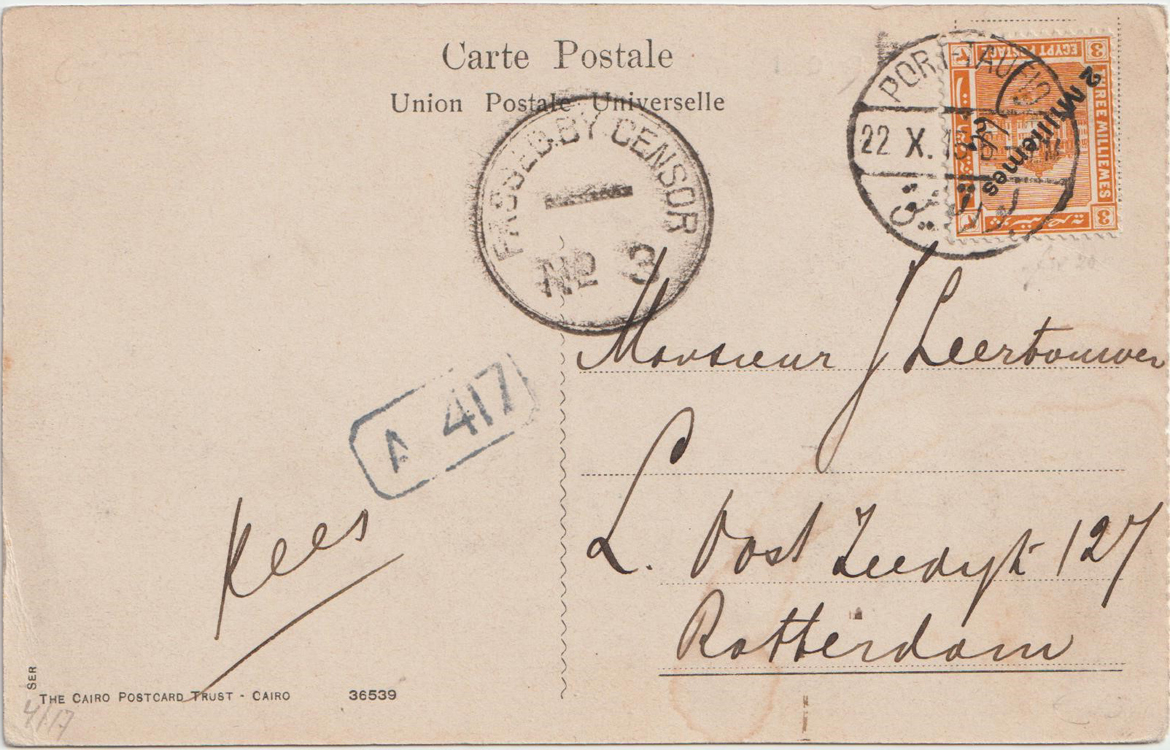 Carte Postale
Union Postale Universelle
PORT-TAUFIQ
22 X. 15
EGYPT POSTAGE
THREE MILLIEMES
3
3
2 Milliemes
PASSED BY CENSOR
No 3
A 417
Monsieur J Leerbouwer
L. Oost Zeedyk 127
Rotterdam
Kees
SER
THE CAIRO POSTCARD TRUST - CAIRO 36539
4/17